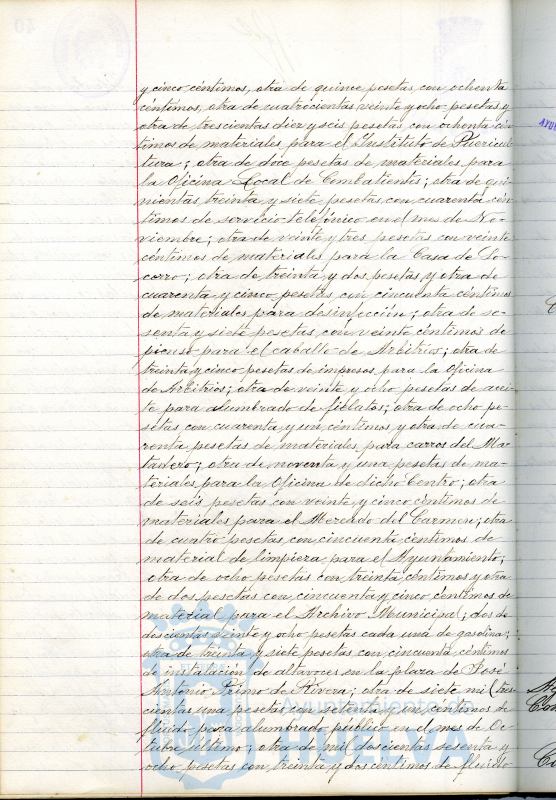 y cinco céntimos, otra de quince pesetas con ochenta
céntimos, otra de cuatrocientas veinte y ocho pesetas y
otra de trescientas diez y seis pesetas con ochenta cén-
timos de materiales para el Instituto de Puericul-
tura; otra de doce pesetas de materiales, para
la Oficina Local de Combatientes; otra de qui-
nientas treinta y siete pesetas con cuarenta cén-
timos de servicio telefónico en el mes de No-
viembre; otra de veinte y tres pesetas con veinte
céntimos de materiales para la Casa de So-
corro; otra de treinta y dos pesetas y otra de
cuarenta y cinco pesetas con cincuenta céntimos
de materiales para desinfección; otra de se-
senta y siete pesetas con veinte céntimos de
pienso para el caballo de Arbitrios; otra de
treinta y cinco pesetas de impresos para la Oficina
de Arbitrios; otra de veinte y ocho pesetas de acei-
te para alumbrado de fielatos; otra de ocho pe-
setas con cuarenta y un céntimos, y otra de cua-
renta pesetas de materiales para carros del Ma-
tadero; otra de noventa y una pesetas de ma-
teriales para la Oficina de dicho Centro; otra
de seis pesetas con veinte y cinco céntimos de
materiales para el Mercado del Carmen; otra
de cuatro pesetas con cincuenta céntimos de
material de limpieza para el Ayuntamiento;
otra de ocho pesetas con treinta céntimos y otra
de dos pesetas con cincuenta y cinco céntimos de
material para el Archivo Municipal; dos de
doscientas veinte y ocho pesetas cada una de gasolina;
otra de treinta y siete pesetas con cincuenta céntimos
de instalación de altavoces en la plaza de José
Antonio Primo de Rivera; otra de siete mil tres-
cientas una pesetas con setenta y un céntimos de
fluido para alumbrado público en el mes de Oc-
tubre último; otra de mil doscientas sesenta y
ocho pesetas con treinta y dos céntimos de fluido
Ayuntamiento de
HUELVA